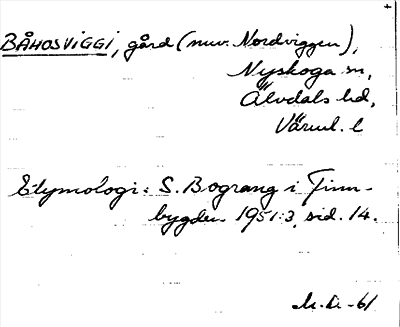 BÅHOSVIGGI, gård (nuv. Nordviggen),
Nyskoga sn,
Älvdals hd,
Värml. l
Etymologi: S. Bograng i Finn-
bygden 1951:3, sid. 14.
-61